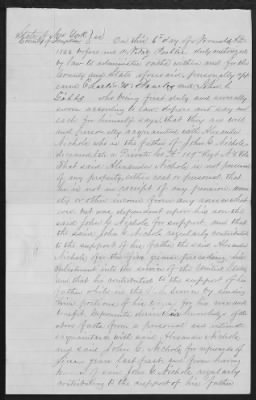 State of New York } ss
County of
On this 6th day of November
1888 before me a Notary Public duly authorized
by law to administer oaths within and for the
County and State aforesaid personally app
eared Charles W. and John C.
Gibbs who being first duly and severally
sworn according to law depose and say and
each for himself says that they are well
and personally acquainted with Alexander
Nichols who is the father of John C. Nichols
deceased late a Private Co. 107 Regt N.Y. Vols
That said Alexander Nichols is not possessed
of any property either real or personal, that
he is not in receipt of any pension annu
ity or other income from any source what
ever but was dependent upon his son the
said John C. Nichols for support and that
the said John C. Nichols regularly contributed
to the support of his father the said Alexander
Nichols for the five years preceding his
enlistment into the service of the United States
and that he contributed to the support of his
father while in the U.S. service by sending
him portions of his wages for his use and
benefit. Deponents derived knowledge of the
above facts from a personal and intimate
acquaintance with said Alexander Nichols
and said John C. Nichols for upwards of
five years last past and from having
said John C. Nichols regularly
contributing to the support of his father